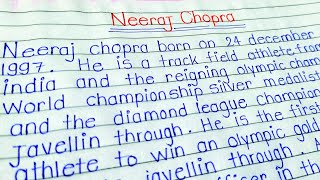 Neeraj Chopra
Neeraj chopra born on 24 december
1997. He is a track field athlete from
india and the reigning olympic cham
World championship silver medalist
and the diamond league champion
Javellin through. He is the first
athlete to win an olympic gold
javellin through. A
officer in the